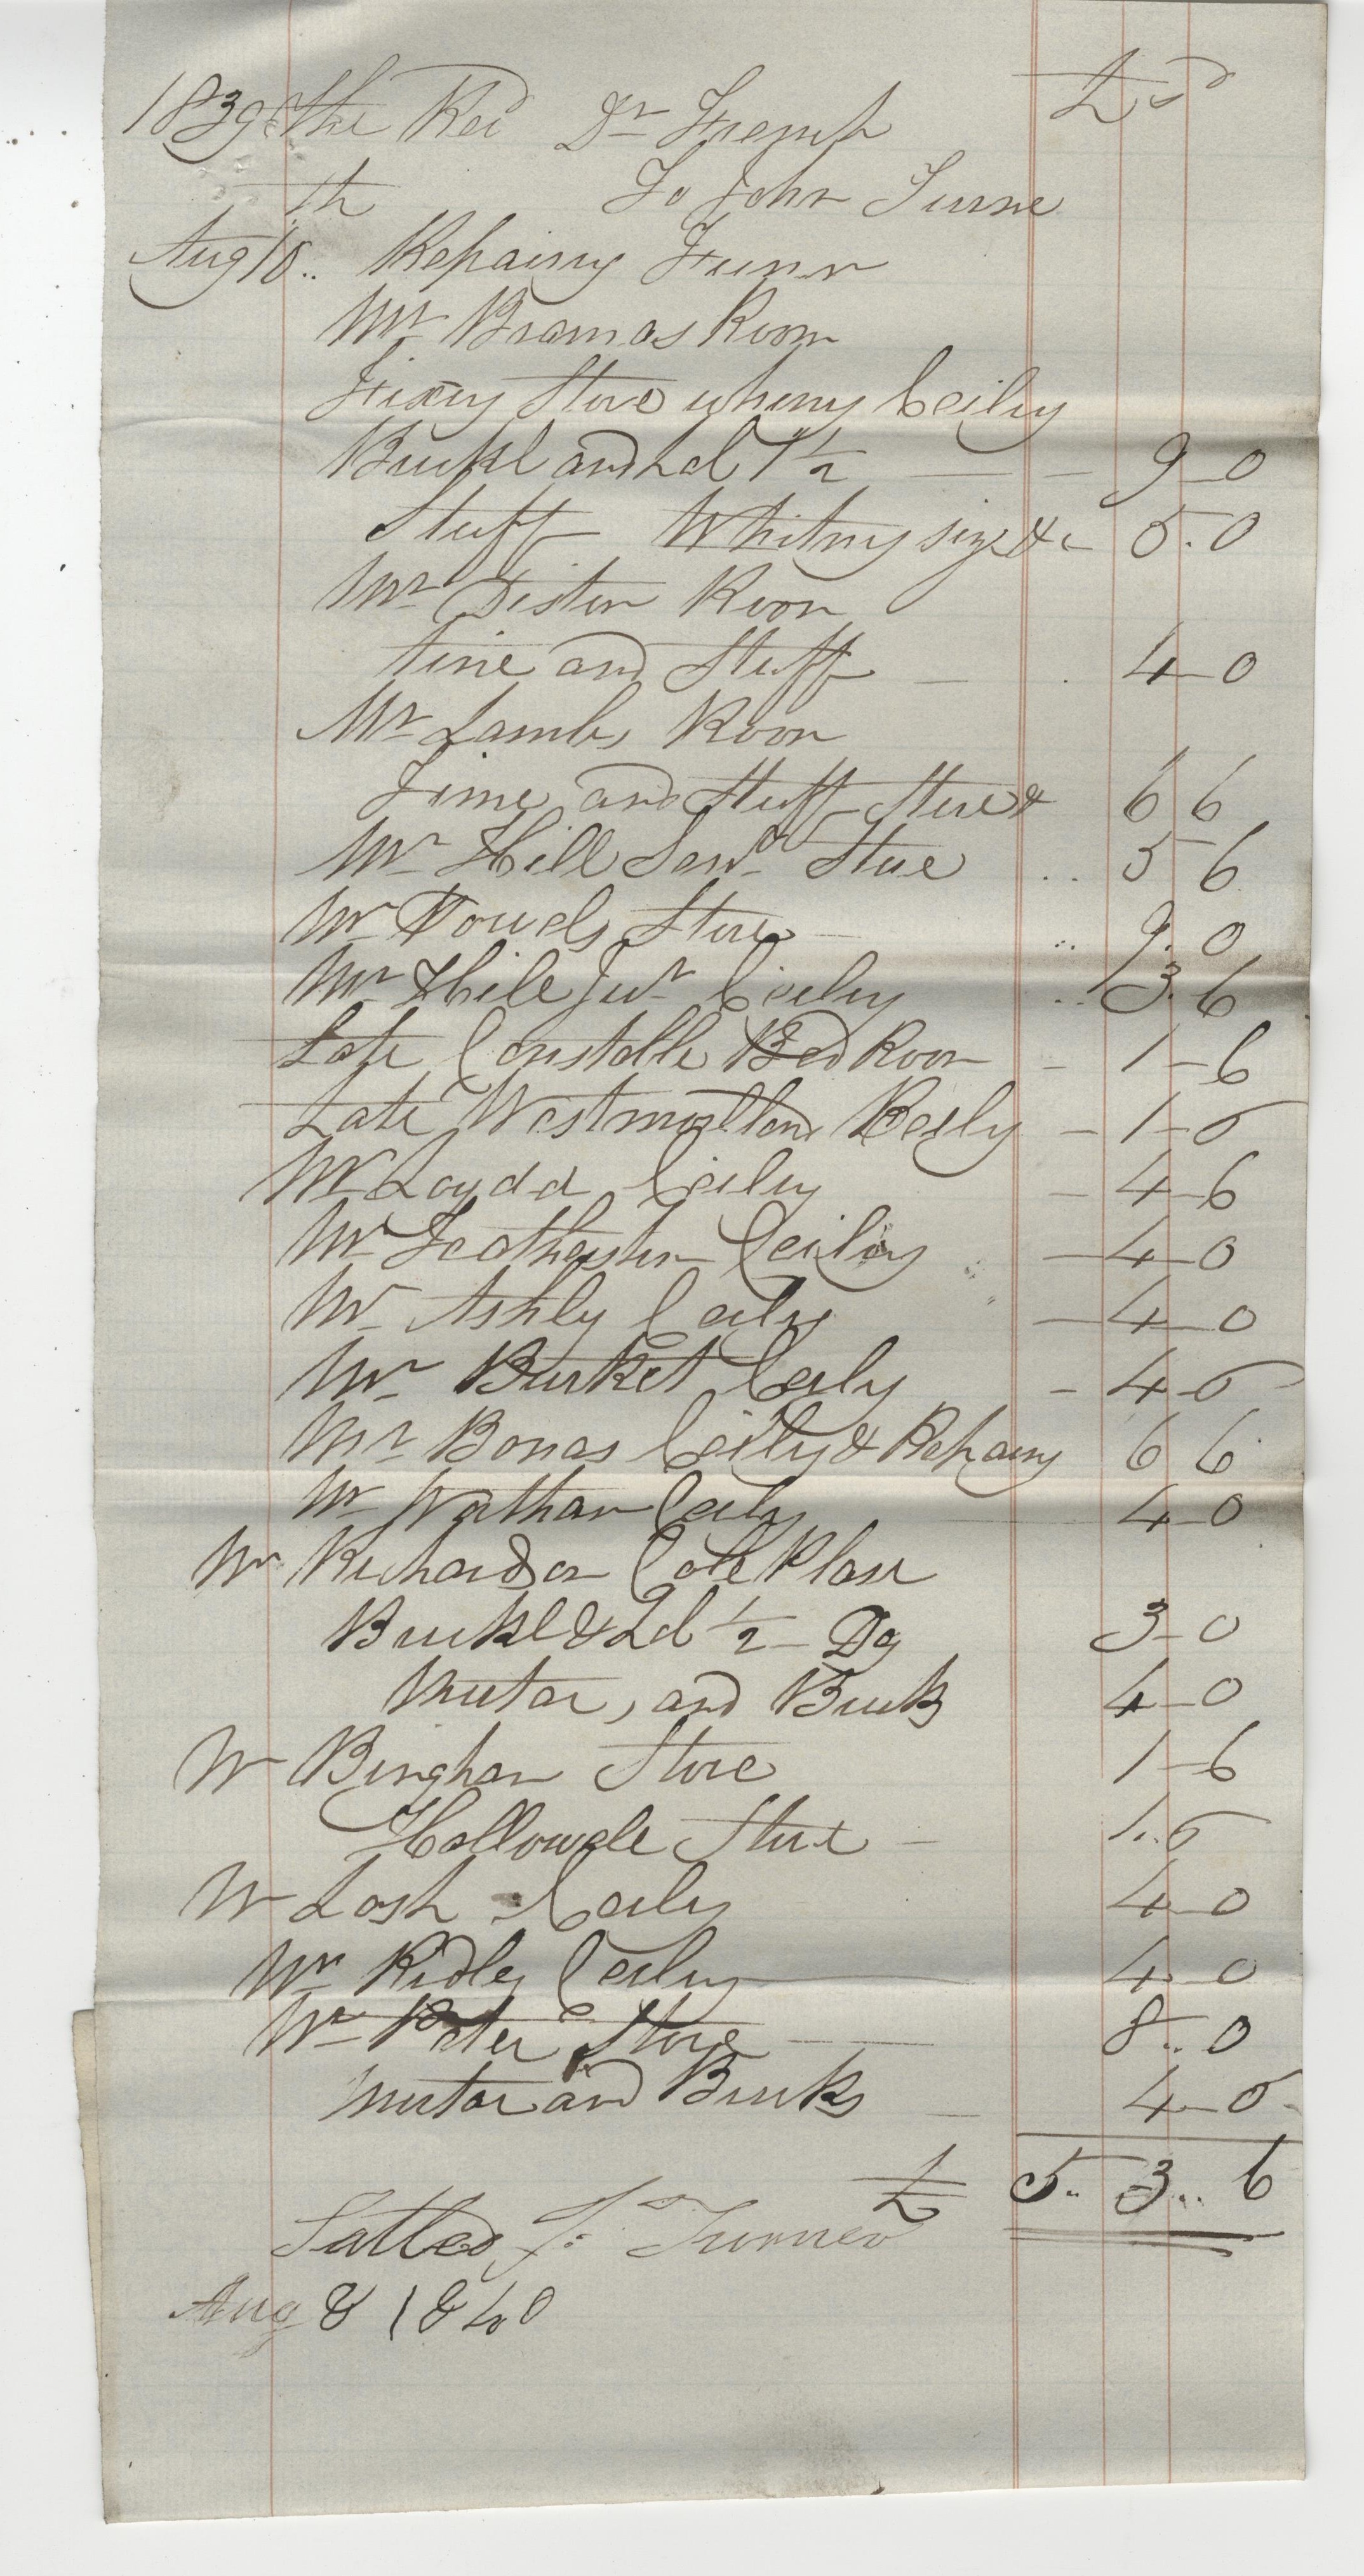 1839 The Rev Dr French £ s d
th To John Turne
Aug 10.. Repairing
Mr Bramas Room
Fixing Stove whing Ceiling
Buckl and Ld 1 1/2 — — 9-0
Stuff Whitning size &c 5.0
Mr Distin Room
time and Stuff — . 4-0
Mr Lambs Room
Time and Stuff Stove & 6 6
Mr Hill Senr Stove .. 5 6
Mr Stove — .. 9.0
Mr Hill Junr Ceiling .. 3.6
Late Constable Bed Room - 1-6
Late Westmorland Ceily - 1-6
Mr Loydd Ceiling - 4-6
Mr Ceiling - 4-0
Mr Ashly Ceiling - 4-0
Mr Burket Ceily - 4-0
Mr Bonas Ceily & Repairing 6 6
Mr Wathan Ceily 4-0
Mr Richardson Plase
Buckl & Ld 1/2 - Dy 3-0
Mortar, and Bricks 4-0
Mr Bingham Stove 1-6
Stove - 1..6
Mr Losh Ceily 4-0
Mr Ridley Ceiling 4-0
Mr Pater Stove — 8..0
mortar and Bricks — 4-0
£ 5.. 3.. 6
Sattled J. Turner
Aug 8 1840